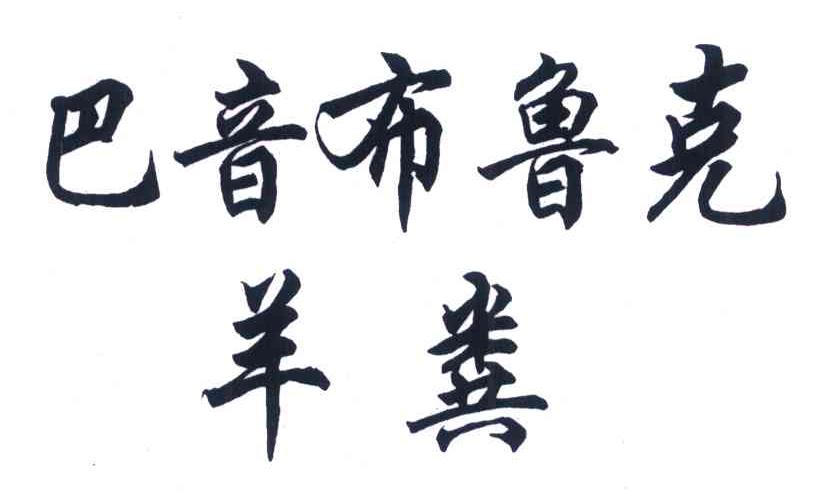 巴音布鲁克
羊粪